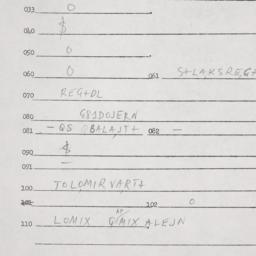 033 O
040 $
050 O
060 O 061 S+LAKSREG+
070 REG+DL
080 G81DOJERN
081 - QS OBALAJT+ 082 -
090 $
091 -
100 JOLOMIRVART+
102 O
110 LOMIX G/MIX ALEJN